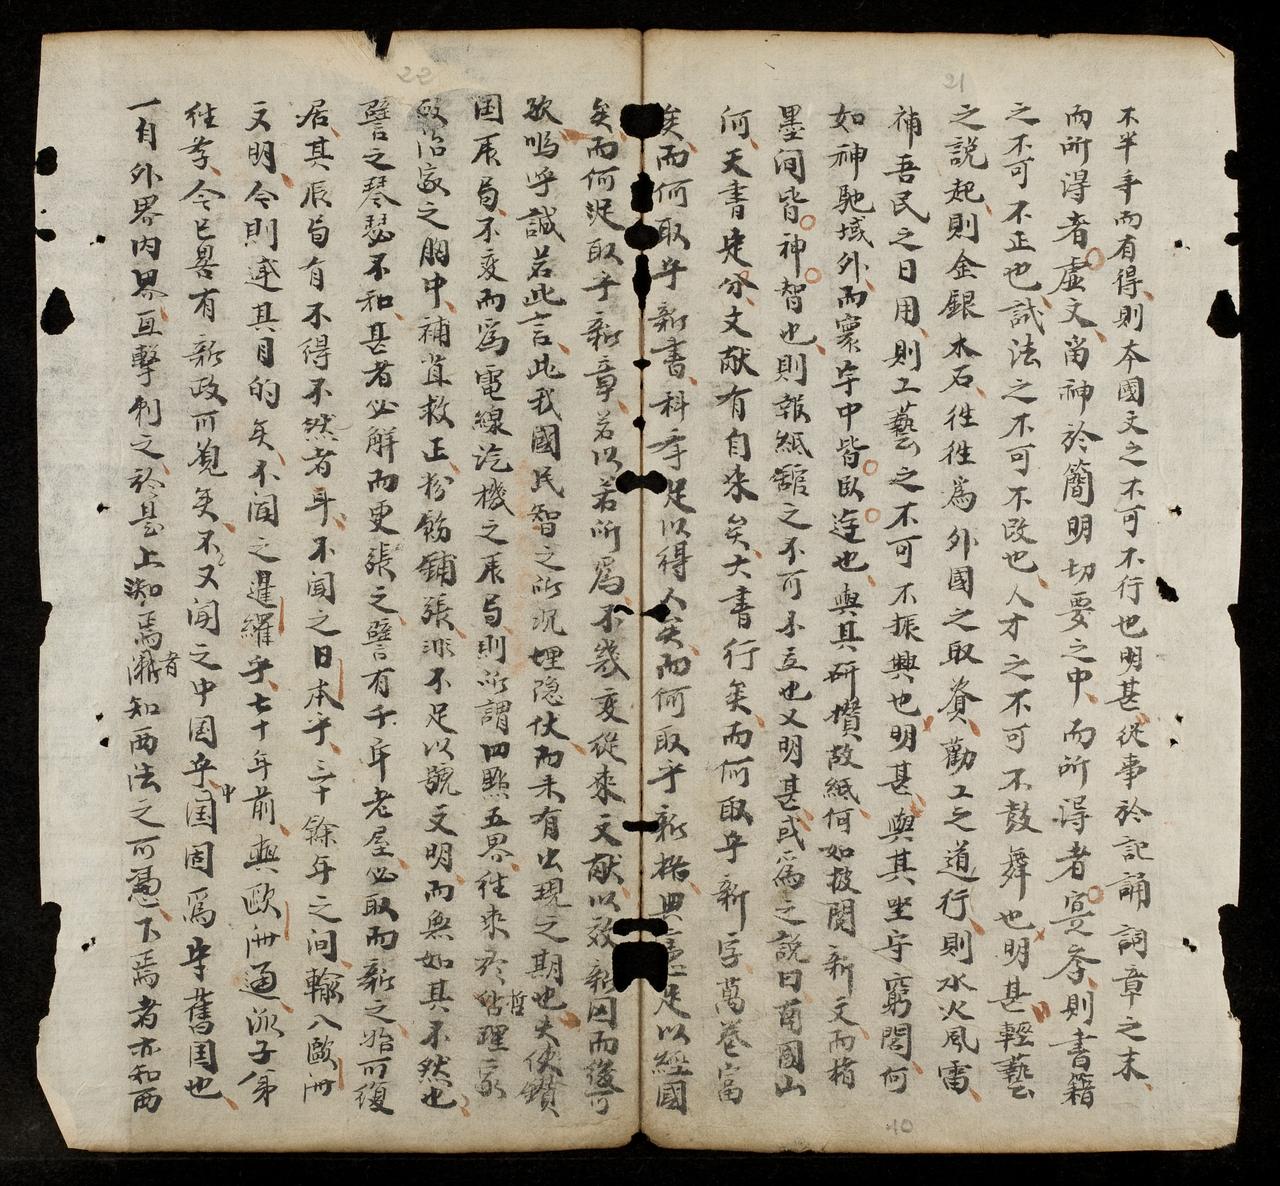 21
不半手而有得則本國文之不可不行也明甚從事於記誦詞章之末
而所得者虛文尚神於簡明切要之中而所得者寔李則書籍
之不可不正也試法之不可不改也人才之不可不鼓舞也明甚輕藝
之說起則金銀木石徃徃為外國之取資勸工之道行則水火風雷
補吾民之日用則工藝之不可不振興也明甚與其坐守窮閭何
如神馳域外而寰宇中皆臥逰也與其研攢故紙何如披閱新文而楮
墨间皆神智也則報紙舘之不可不立也又明甚或為之說曰南國山
何天書㝎分文献有自来矣大書行矣而何取乎新字萬卷富
矣而何取乎新書科孝足以得人矣而何取乎新格典憲足以經國
矣而何足取乎新章若以若所為不幾变從来文献以效新囯而後可
22
歟嗚呼誠若此言此我國民智之所沉埋隐伏而未有出現之期也夫使鑽
囯辰局不変而為電線汽機之辰局則所謂四㸃五界徃来於佔哲理家
政治家之胸中補苴救正扮飭鋪張非不足以號文明而無如其不然也
譬之琴瑟不和甚者必解而更張之譬有千年老屋必取而新之始可復
居其辰局有不得不然者耳不闻之日本乎三十餘年之间輸入歐洲
文明今則達其目的矣不闻之暹羅乎七十年前與歐洲通派子弟
徃李今已畧有新政可覔矣不又闻之中国乎中国固為守舊国也
一自外界内界互擊刺之於是上焉者漸知西法之可憑下焉者亦知西
10